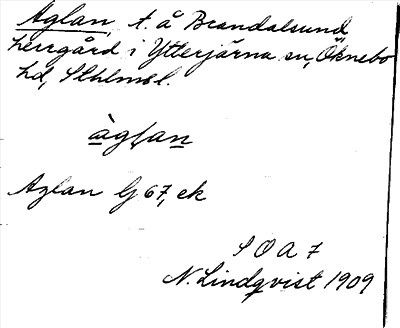 Aglan, t. å Brandalsund,
herrgård i Ytterjärna sn, Öknebo
hd, Sthlmsl.
àglan
Aglan G 67, ek
S O A 7
N. Lindqvist 1909